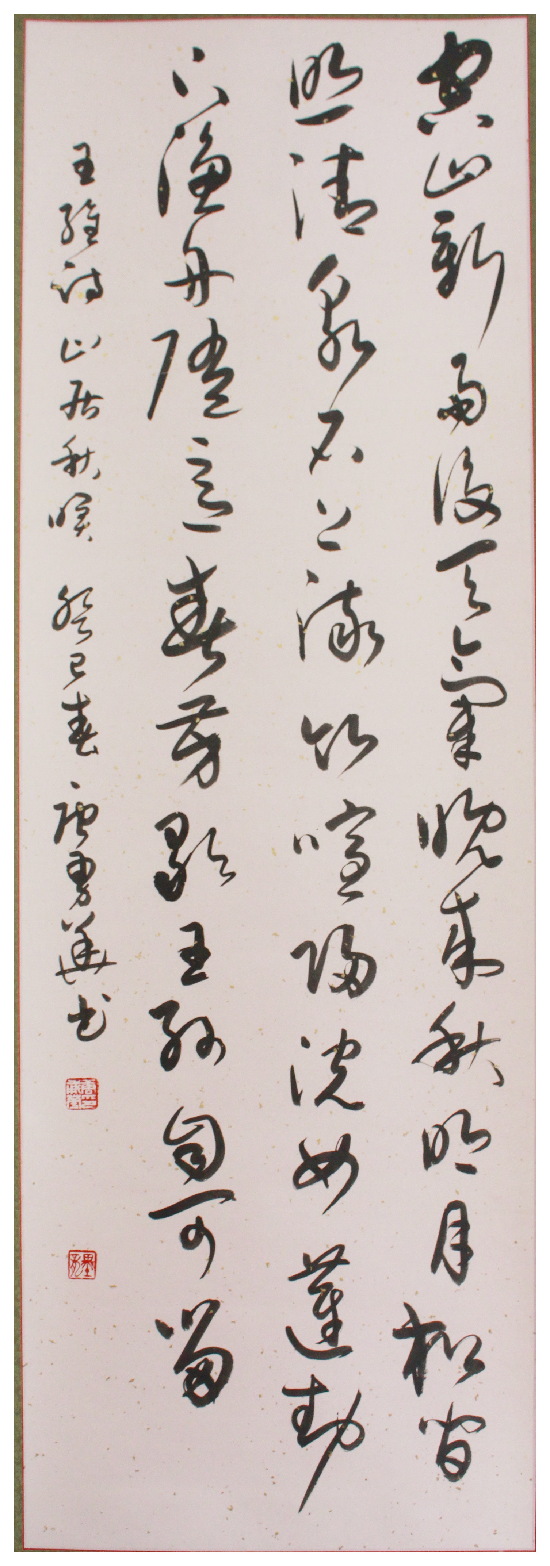 空山新雨後天氣晚來秋明月松間
照清泉石上流竹喧歸浣女蓮動
下漁舟隨意春芳歇王孫自可留
王維詩山居秋暝 癸巳春 唐勇華书